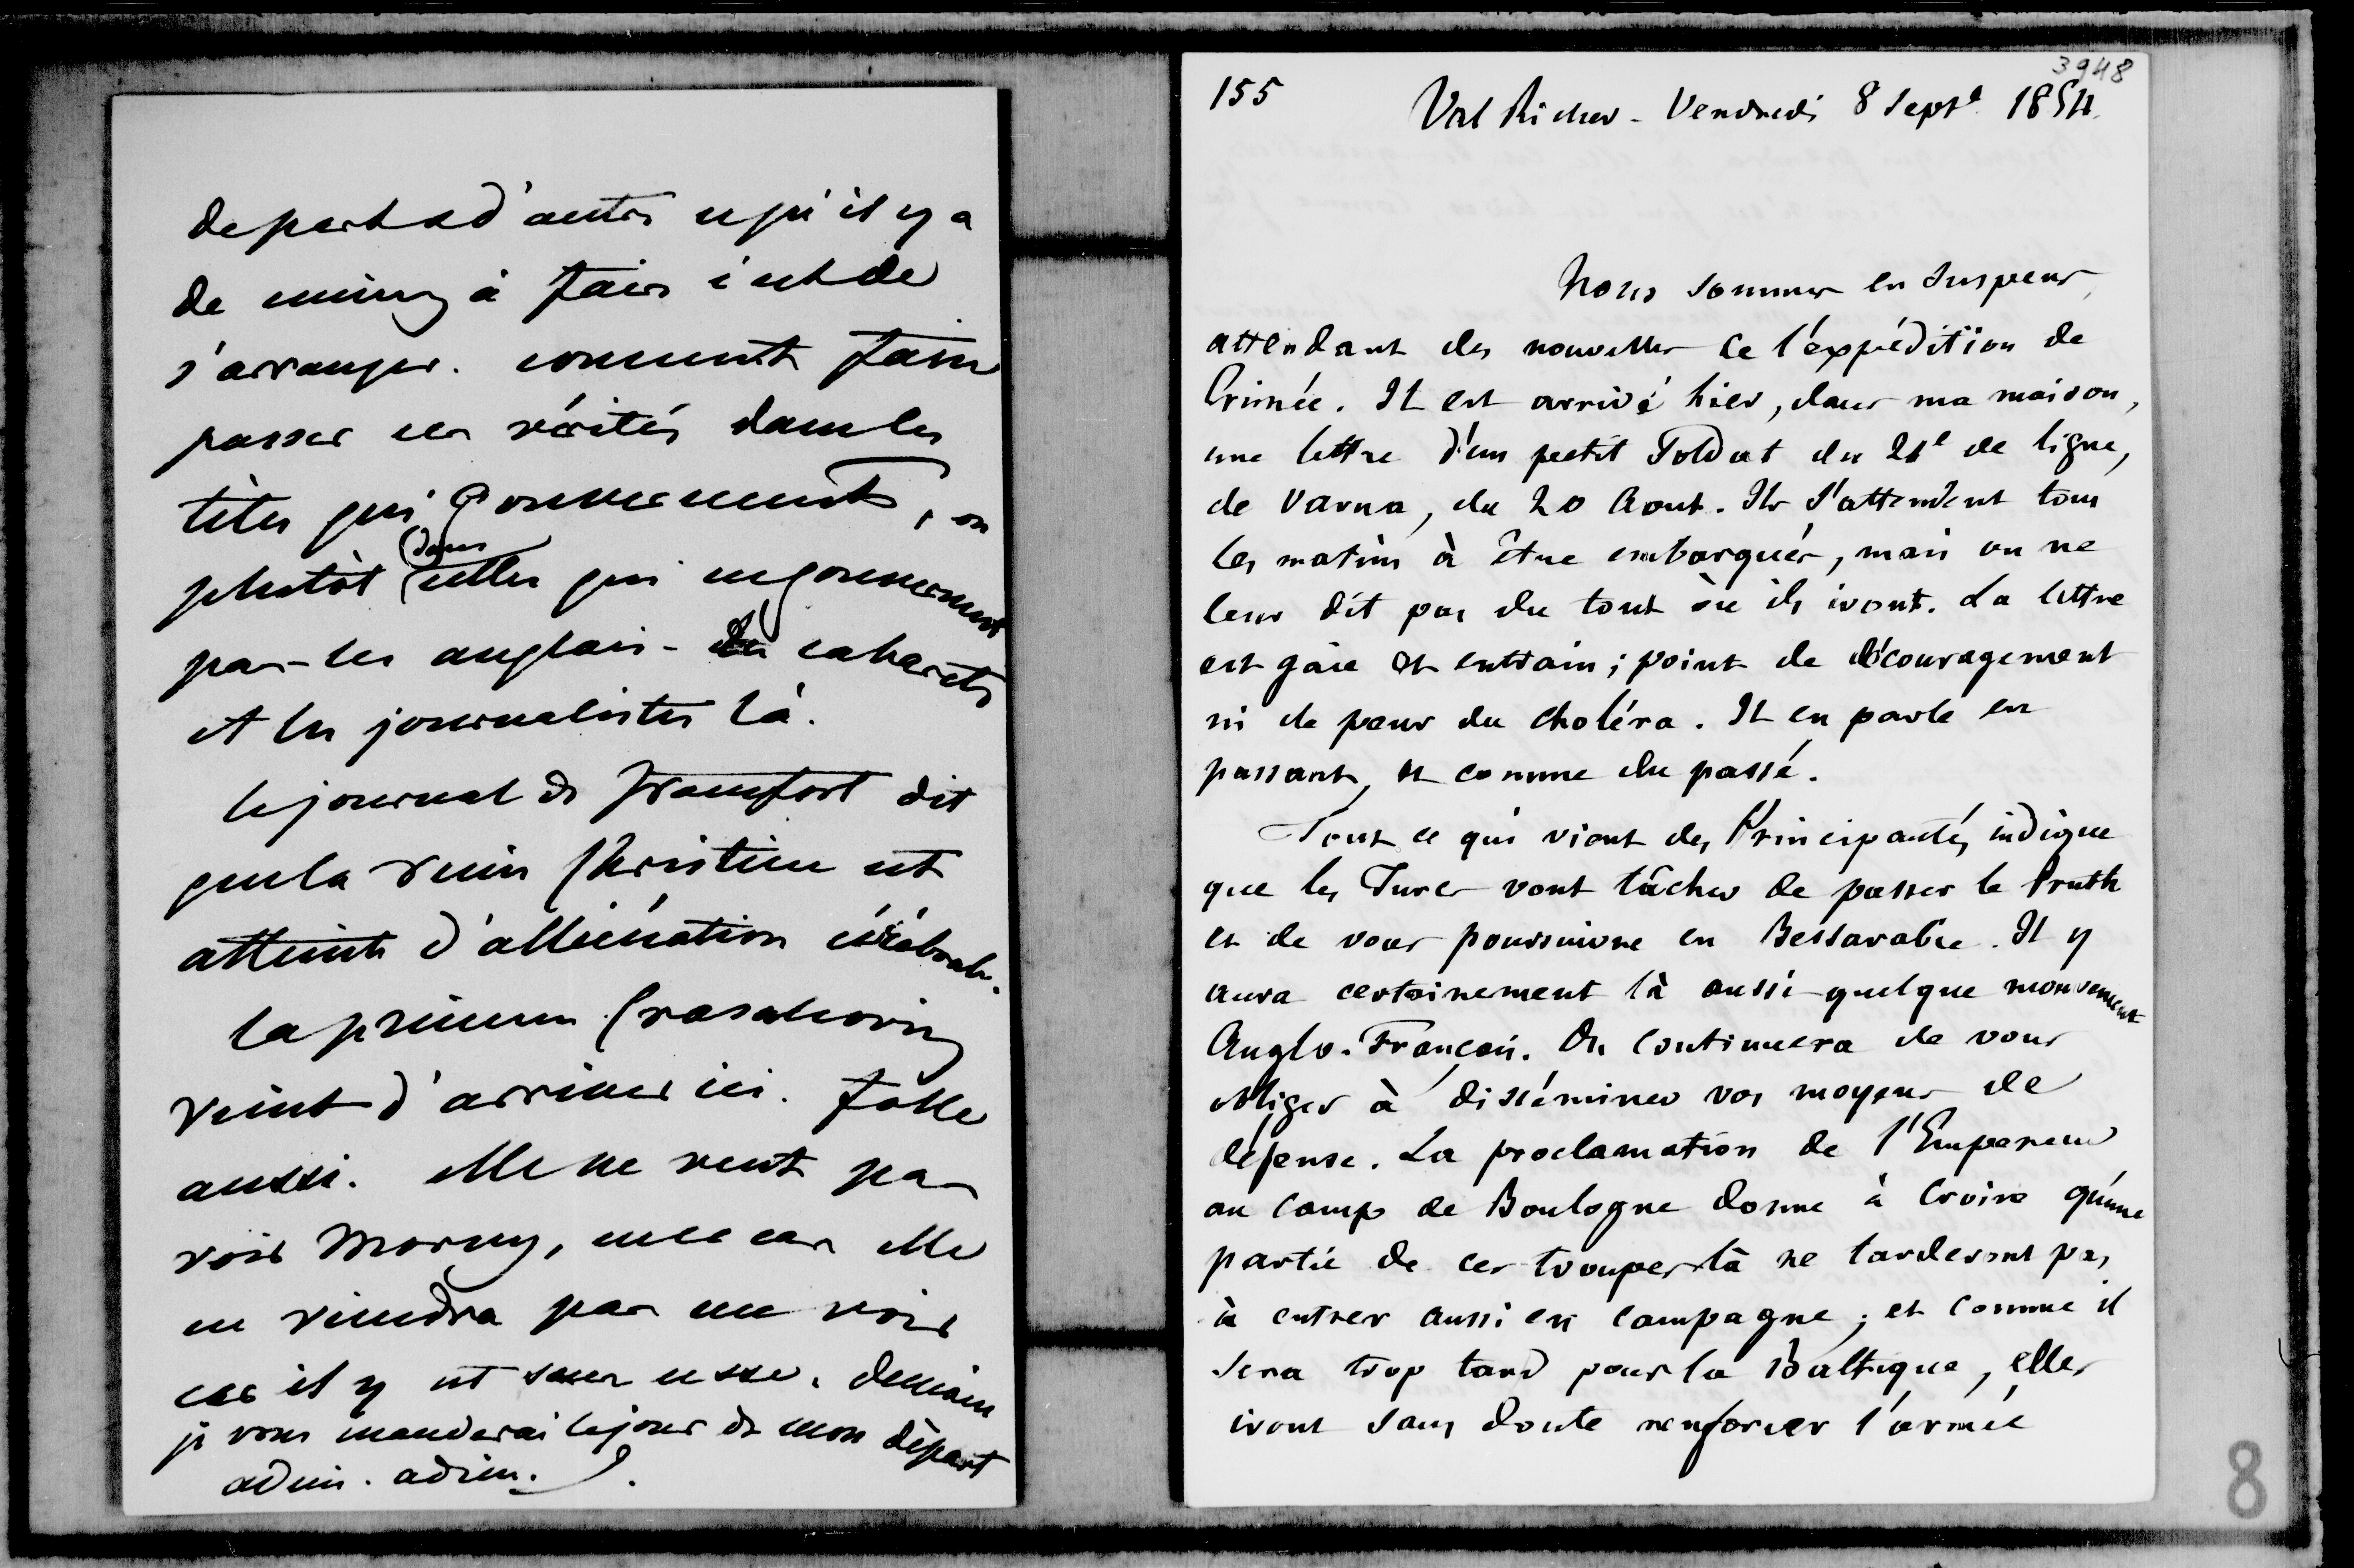 de part et d'autre ce qu'il y a
de mieux à faire c'est de
s'arranger. comment faire
passer ces vérités dans les
têtes qui gouvernent, ou
plutôt dans celles qui ne gouvernent
pas - les anglais - les cabarets
et les journalistes là.
le journal de francfort dit
que la reine Christine est
atteinte d'alliénation cérébrale.
la princesse Crasalcovy
vient d'arriver ici. folle
aussi. elle ne veut pas
voir Morny, en ce cas elle
ne viendra pas me voir
car il y est sans cesse. demain
je vous manderai le jour de mon départ
adieu. adieu.
155
3948
Val Richer - Vendredi 8 Sept^e 1854.
Nous sommes en suspens,
attendant des nouvelles de l'expédition de
Crimée. Il est arrivé hier, dans ma maison,
une lettre d'un petit Soldat du 21^e de ligne,
de Varna, du 20 Aout. Ils s'attendent tous
les matins à être embarqués, mais on ne
leur dit pas du tout où ils iront. La lettre
est gaie et entrain; point de découragement
ni de peur du choléra. Il en parle en
passant, et comme du passé.
Tout ce qui vient des Principautés indique
que les Turcs vont tâcher de passer le Pruth
et de vous poursuivre en Bessarabie. Il y
aura certainement là aussi quelque mouvement
Anglo-Français. On continuera de vous
obliger à disséminer vos moyens de
défense. La proclamation de l'Empereur
au camp de Boulogne donne à croire qu'une
partie de ces troupes là ne tarderont pas
à entrer aussi en campagne; et comme il
sera trop tard pour la Baltique, elles
iront sans doute renforcer l'armée
8